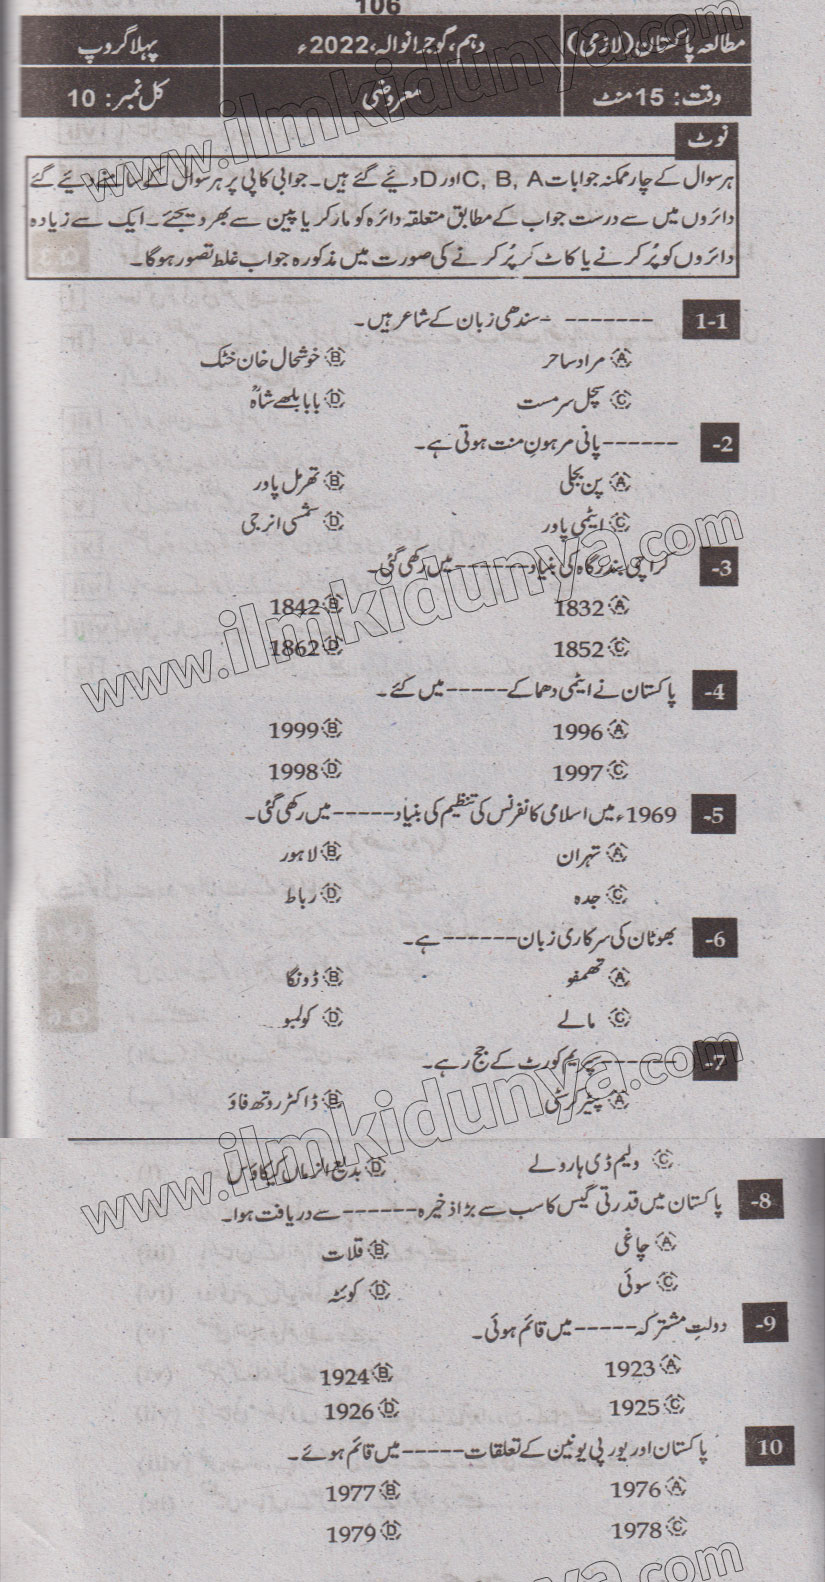 106
مطالعہ پاکستان (لازمی) دہم، گوجرانوالہ، 2022ء پہلا گروپ
وقت: 15 منٹ معروضی کل نمبر: 10
نوٹ
ہر سوال کے چار ممکنہ جوابات C, B, A اور D دئیے گئے ہیں۔ جوابی کاپی پر ہر سوال کے سامنے دئیے گئے
دائروں میں سے درست جواب کے مطابق متعلقہ دائرہ کو مارکر یا پین سے بھر دیجئے۔ ایک سے زیادہ
دائروں کو پُر کرنے یا کاٹ کر پُر کرنے کی صورت میں مذکورہ جواب غلط تصور ہوگا۔
1-1 ------- سندھی زبان کے شاعر ہیں۔
A مراد ساحر B خوشحال خان خٹک
C سچل سرمست D بابا بلھے شاہؒ
2- ------ پانی مرہونِ منت ہوتی ہے۔
A پن بجلی B تھرمل پاور
C ایٹمی پاور D شمسی انرجی
3- کراچی بندرگاہ کی بنیاد ------ میں رکھی گئی۔
A 1832 B 1842
C 1852 D 1862
4- پاکستان نے ایٹمی دھماکے ----- میں کئے۔
A 1996 B 1999
C 1997 D 1998
5- 1969ء میں اسلامی کانفرنس کی تنظیم کی بنیاد ----- میں رکھی گئی۔
A تہران B لاہور
C جدہ D رباط
6- بھوٹان کی سرکاری زبان ------ ہے۔
A تھمفو B ڈونگا
C مالے D کولمبو
7- ------ سپریم کورٹ کے جج رہے۔
A پیٹر کرسٹی B ڈاکٹر روتھ فاؤ
C ولیم ڈی ہارولے D بدیع الزماں کیکاؤس
8- پاکستان میں قدرتی گیس کا سب سے بڑا ذخیرہ ------ سے دریافت ہوا۔
A چاغی B قلات
C سوئی D کوئٹہ
9- دولتِ مشترکہ ----- میں قائم ہوئی۔
A 1923 B 1924
C 1925 D 1926
10 پاکستان اور یورپی یونین کے تعلقات ----- میں قائم ہوئے۔
A 1976 B 1977
C 1978 D 1979
www.ilmkidunya.com
www.ilmkidunya.com
www.ilmkidunya.com